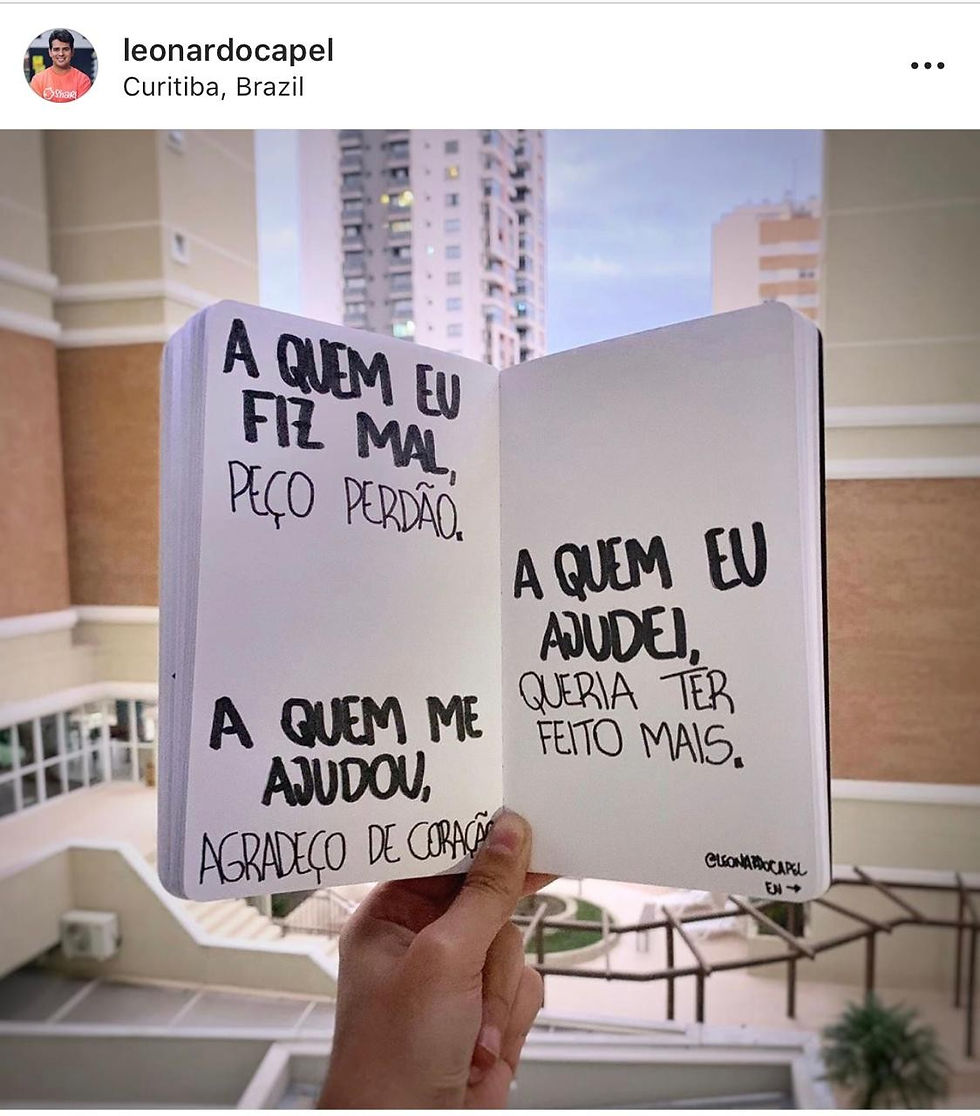 leonardocapel
Curitiba, Brazil
A QUEM EU
FIZ MAL,
PEÇO PERDÃO.
A QUEM ME
AJUDOU,
AGRADEÇO DE CORAÇÃO
A QUEM EU
AJUDEI,
QUERIA TER
FEITO MAIS.
@LEONARDOCAPEL
EN →